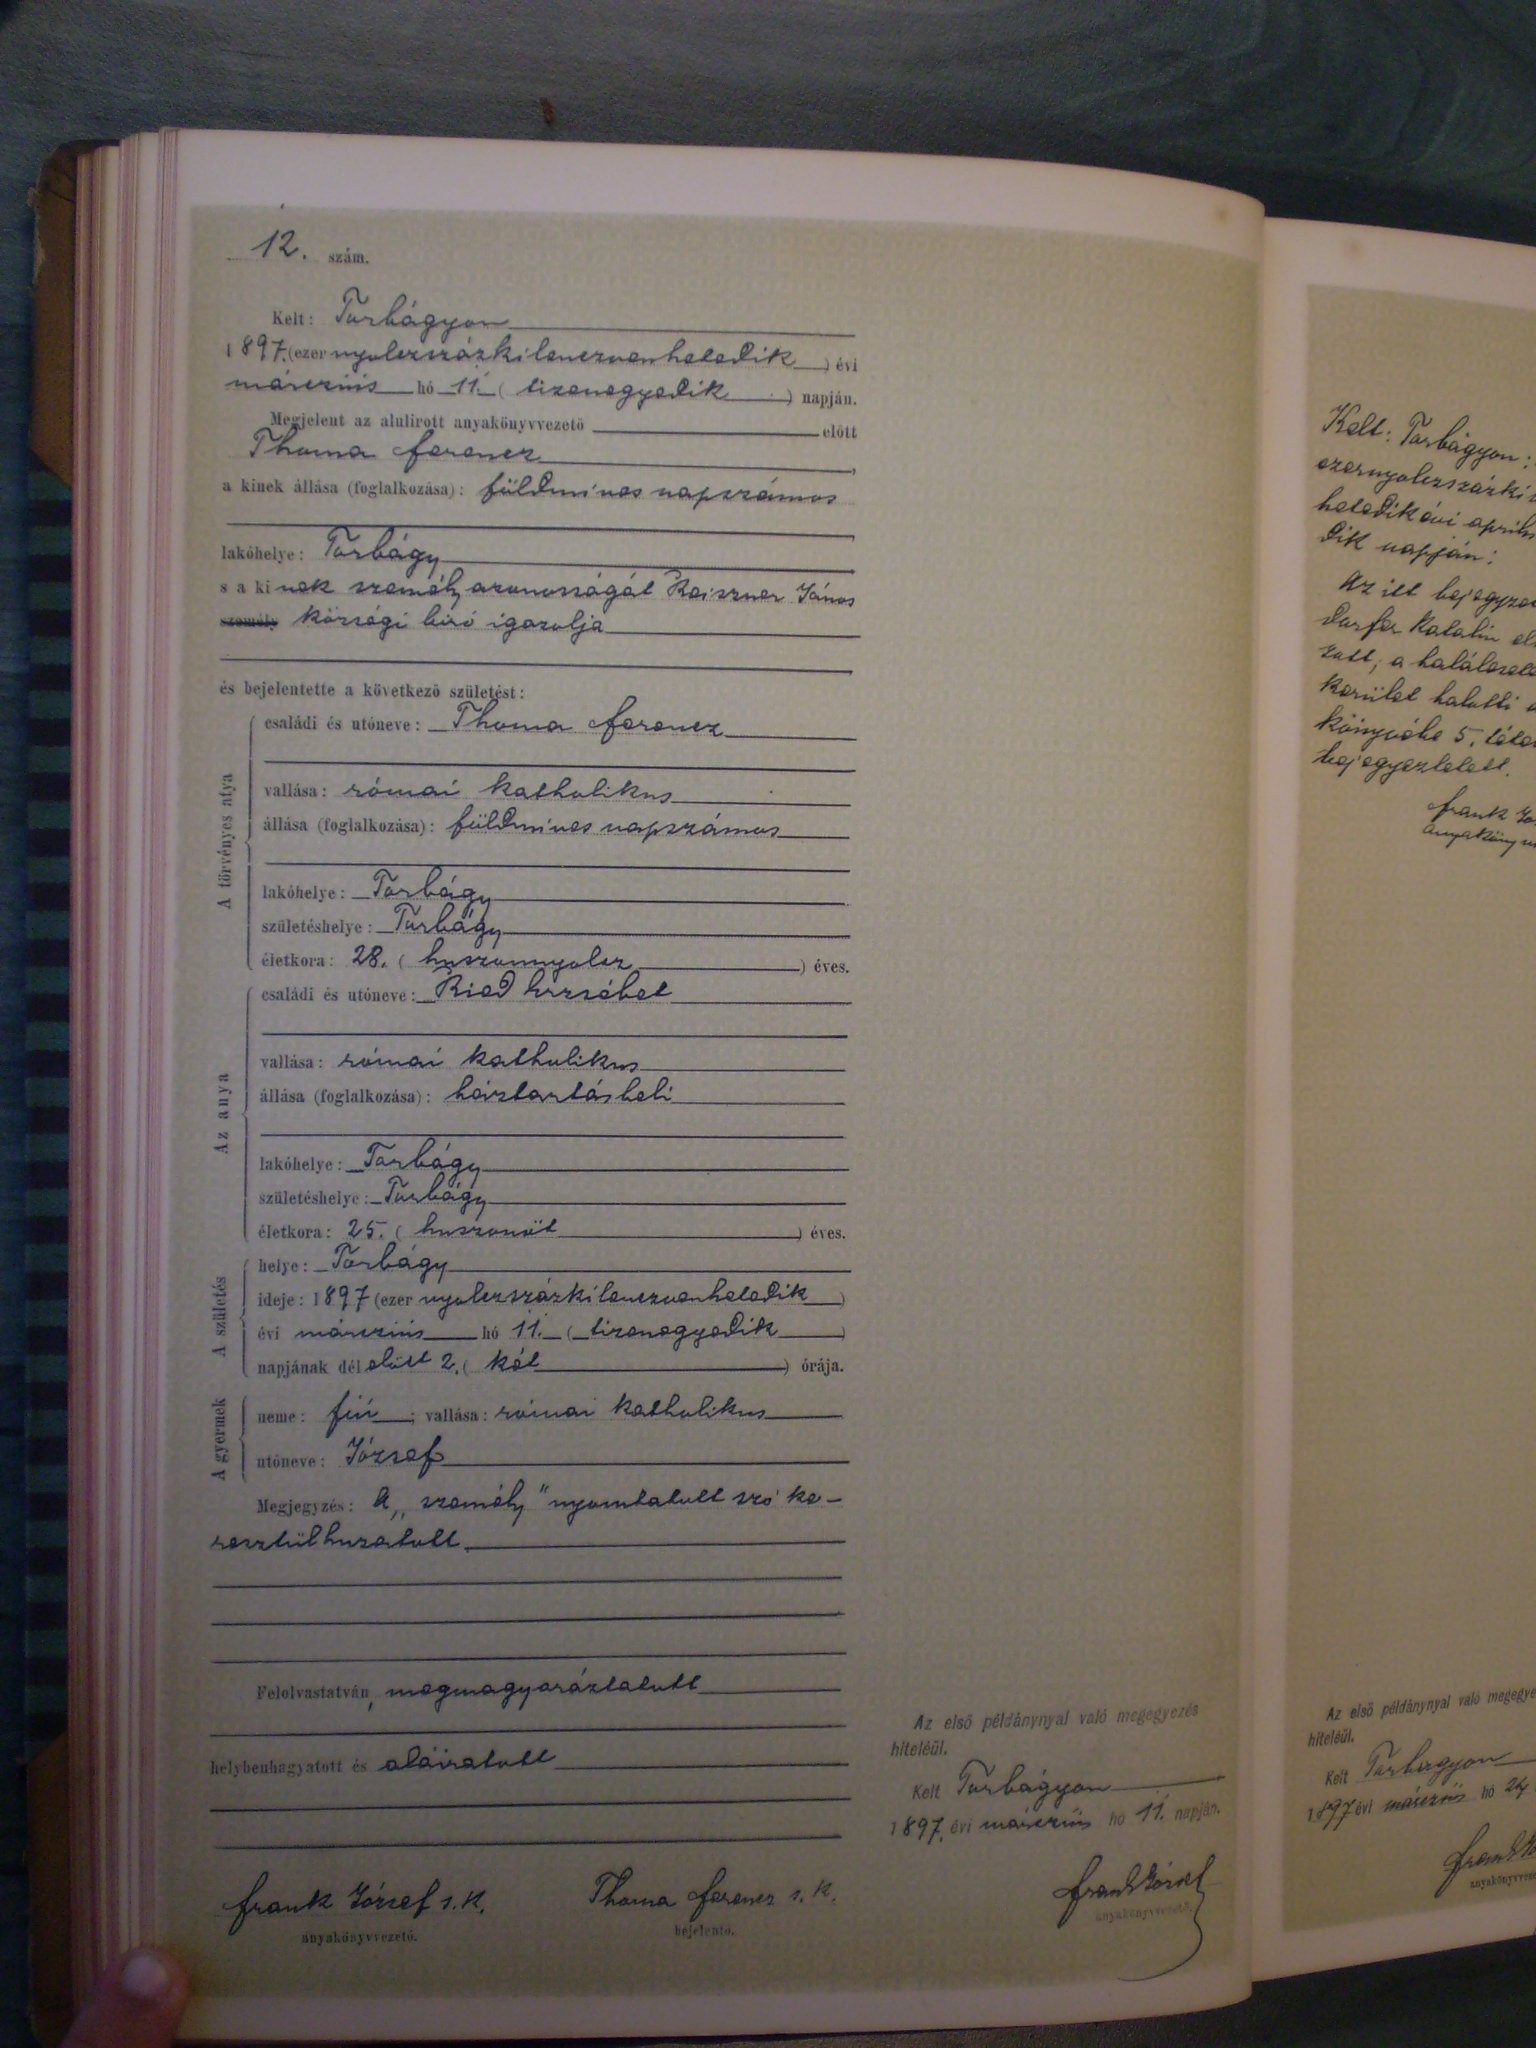 12. szám.
Kelt: Torbágyon
1897. (ezer nyolczszázkilenczvenhetedik) évi
márczius hó 11. (tizenegyedik) napján.
Megjelent az alulirott anyakönyvvezető előtt
Thoma Ferencz,
a kinek állása (foglalkozása): földmives napszámos
lakóhelye: Torbágy
s a kinek személyazonosságát Reiszner János
személy községi biró igazolja
és bejelentette a következő születést:
A törvényes atya
családi és utóneve: Thoma Ferencz
vallása: római katholikus
állása (foglalkozása): földmives napszámos
lakóhelye: Torbágy
születéshelye: Torbágy
életkora: 28. (huszonnyolcz) éves.
Az anya
családi és utóneve: Ried Erzsébet
vallása: római katholikus
állása (foglalkozása): háztartásbeli
lakóhelye: Torbágy
születéshelye: Torbágy
életkora: 25. (huszonöt) éves.
A születés
helye: Torbágy
ideje: 1897 (ezer nyolczszázkilenczvenhetedik)
évi márczius hó 11. (tizenegyedik)
napjának délelőtt 2. (két) órája.
A gyermek
neme: fiú; vallása: római katholikus
utóneve: József
Megjegyzés: A „személy" nyomtatott szó ke-
resztülhuzatott.
Felolvastatván, megmagyaráztatott
helybenhagyatott és aláiratott
Frank József s.k. Thoma Ferencz s.k.
anyakönyvvezető. bejelentő.
Az első példánynyal való megegyezés
hiteléűl.
Kelt Torbágyon
1897. évi márczius hó 11. napján.
Frank József
anyakönyvvezető.
Kelt: Torbágyon:
ezernyolczszázki
hetedik évi április
dik napján:
Az itt bejegyze
dorfer Katalin el
zott, a haláleset
kerület halotti a
könyvébe 5. tétel
bejegyeztetett.
Frank Jó
anyakönyvv
Az első példánynyal való megegye
hiteléűl.
Kelt Torbágyon
1897 évi márczius hó 24
anyakönyvvez